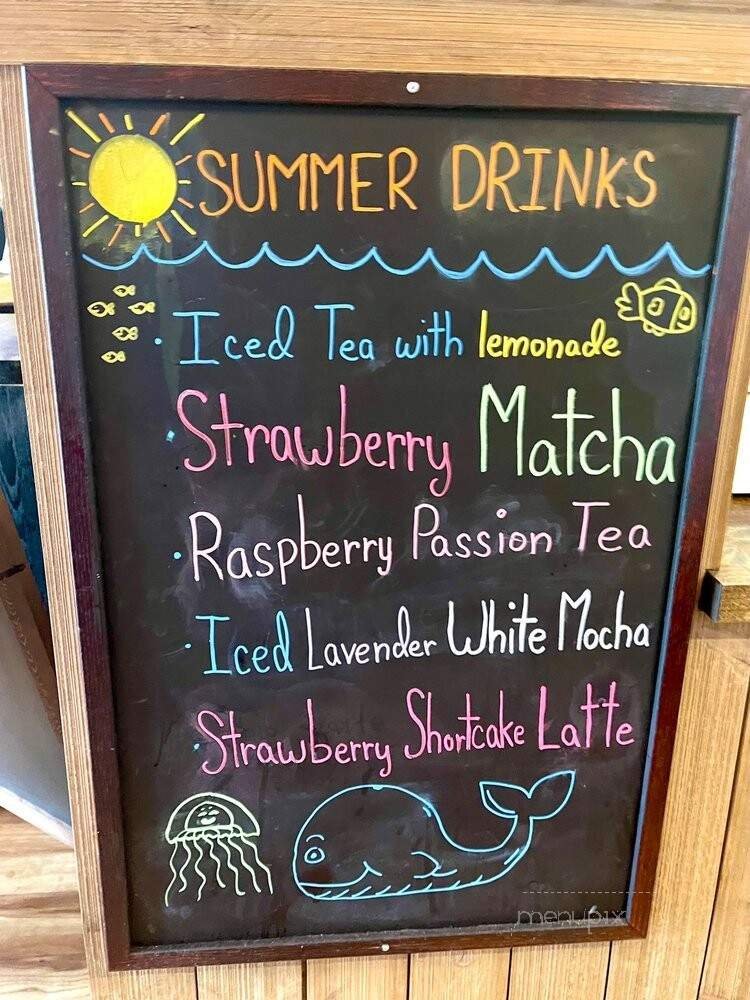 SUMMER DRINKS
· Iced Tea with lemonade
· Strawberry Matcha
· Raspberry Passion Tea
· Iced Lavender White Mocha
· Strawberry Shortcake Latte
menupix